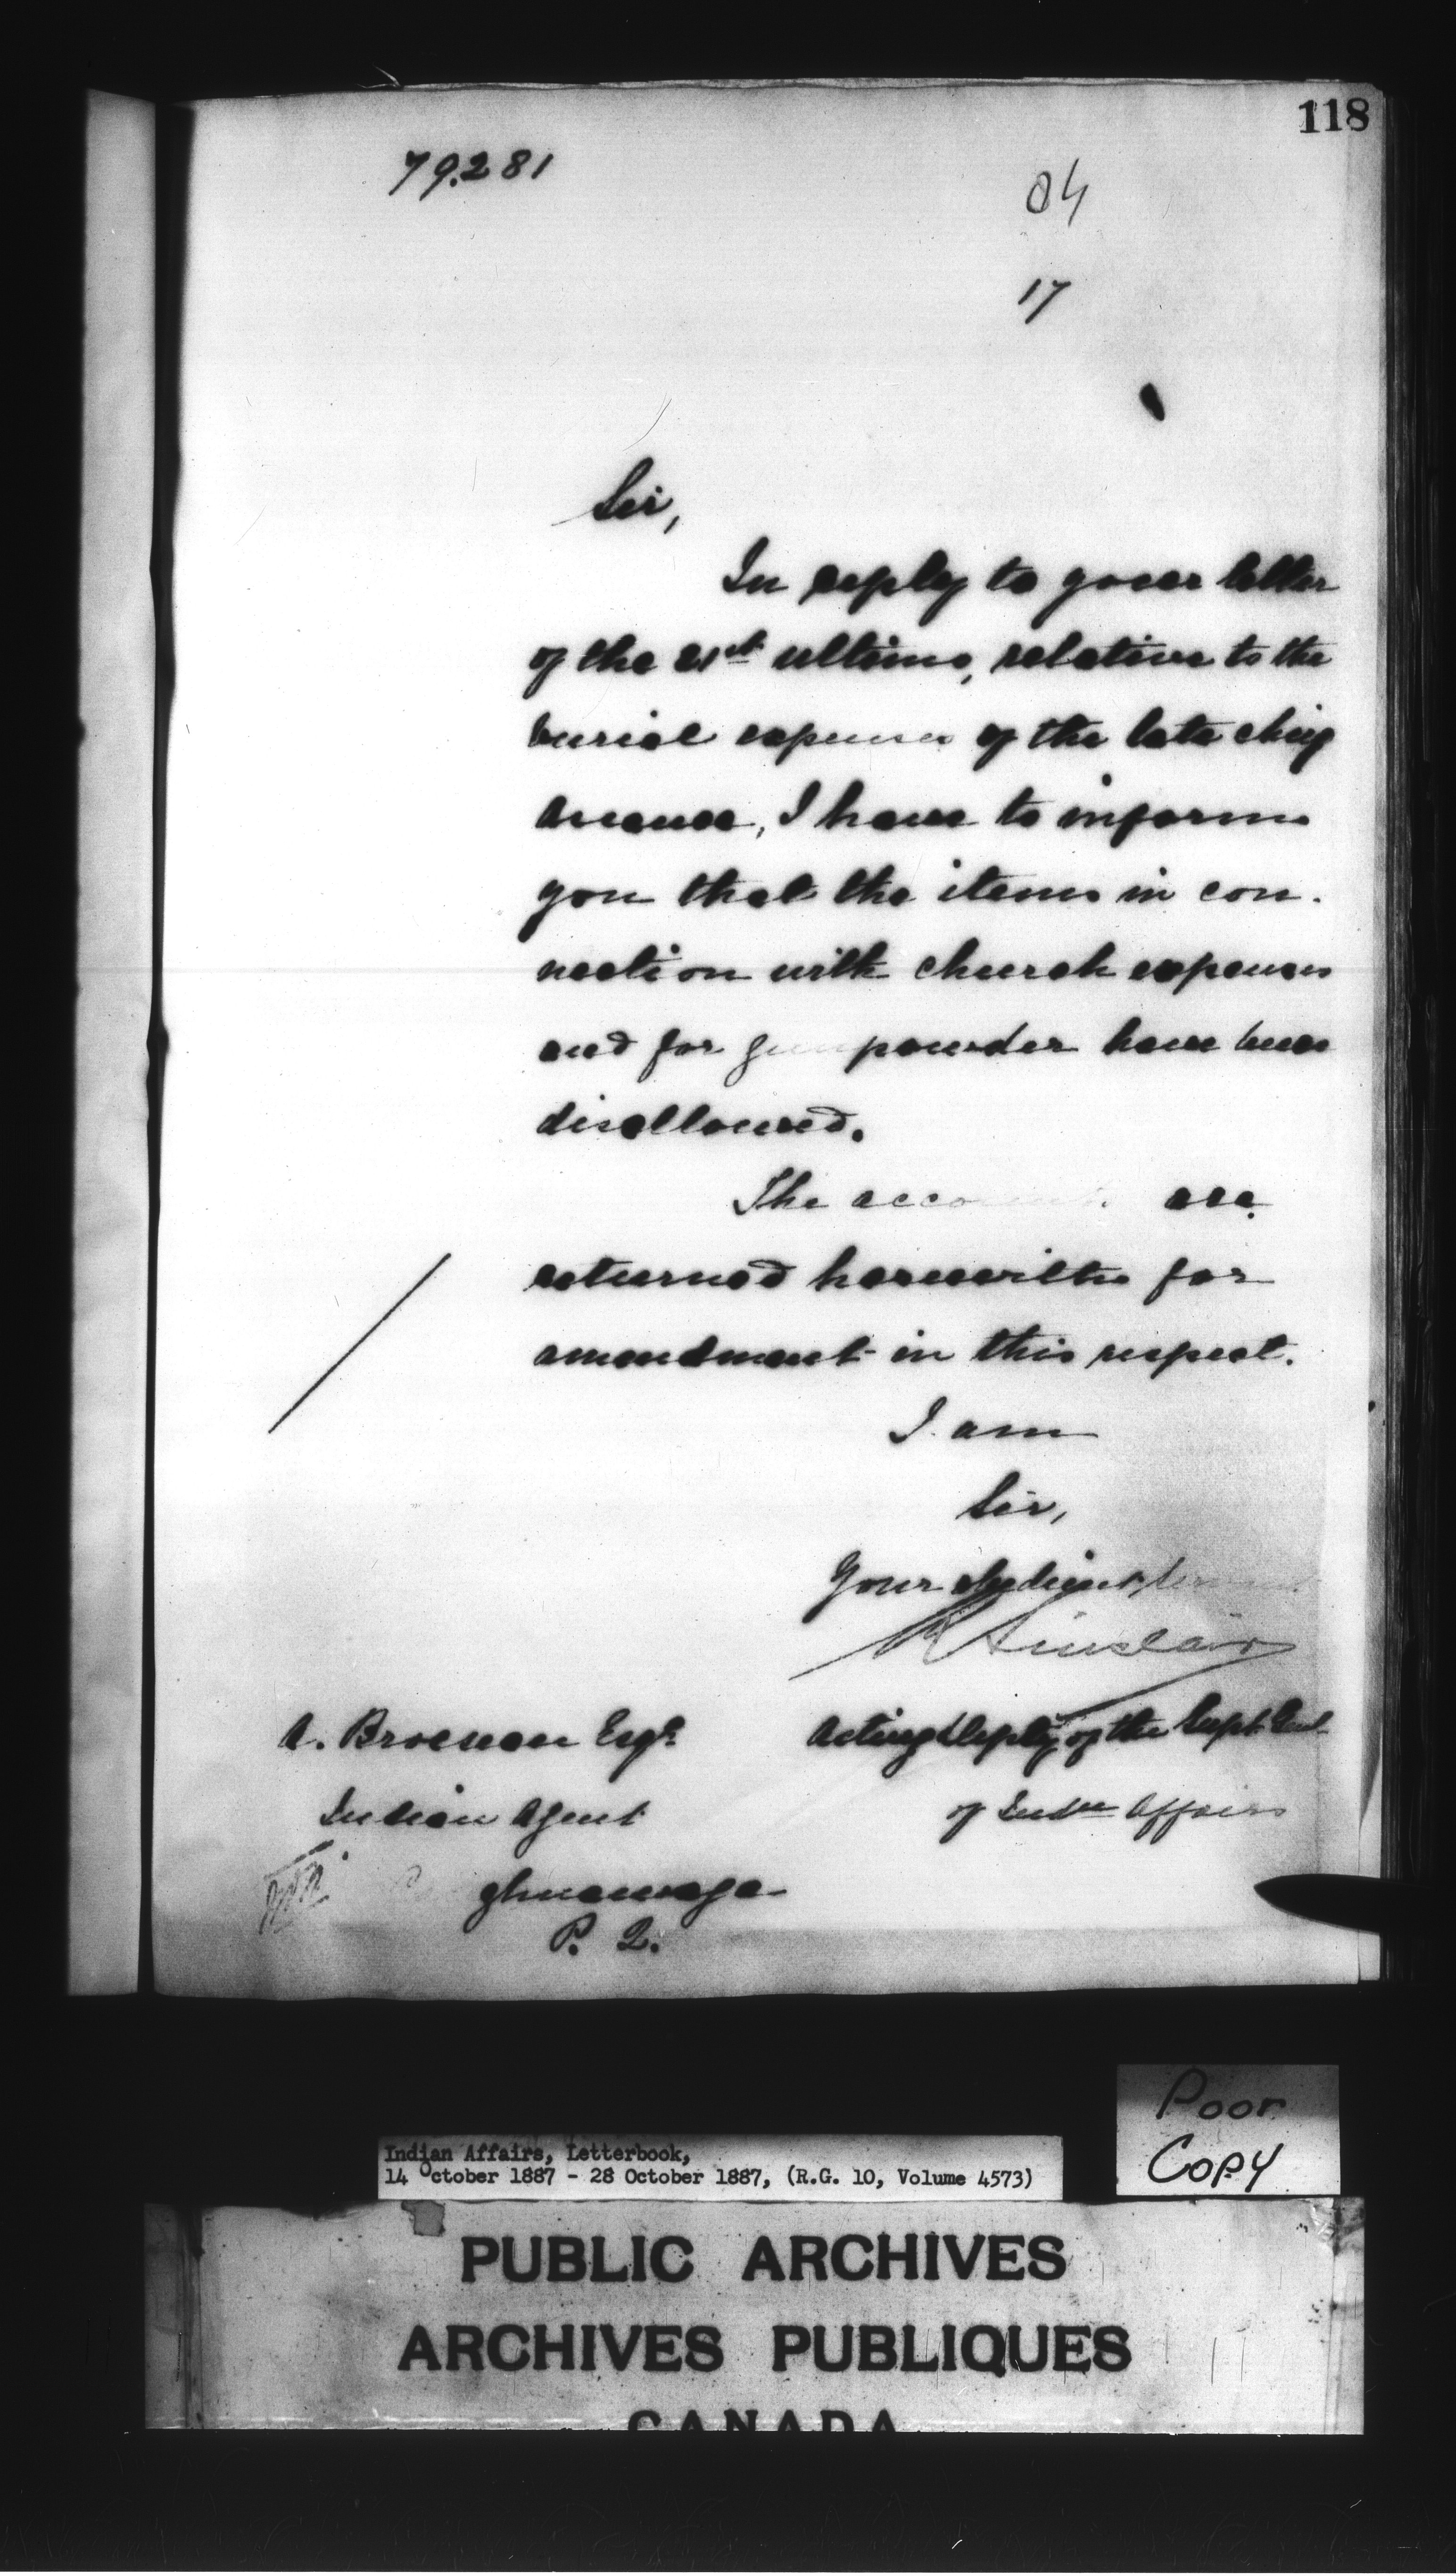 118
79.281
04
17
Sir,
In reply to your letter
of the 21st ultimo, relative to the
burial expenses of the late chief
I have to inform
you that the items in con.
nection with church expenses
and for gunpowder have been
disallowed.
The accounts are
returned herewith for
amendment in this respect.
I am
Sir,
Your obedient servant
R Sinclair
Acting Deputy of the Supt. Genl.
of Indn Affairs
A. Brosseau Esqr.
Indian Agent
ghnawaga
P. Q.
Poor
Copy
Indian Affairs, Letterbook,
14 October 1887 - 28 October 1887, (R.G. 10, Volume 4573)
PUBLIC ARCHIVES
ARCHIVES PUBLIQUES
CANADA